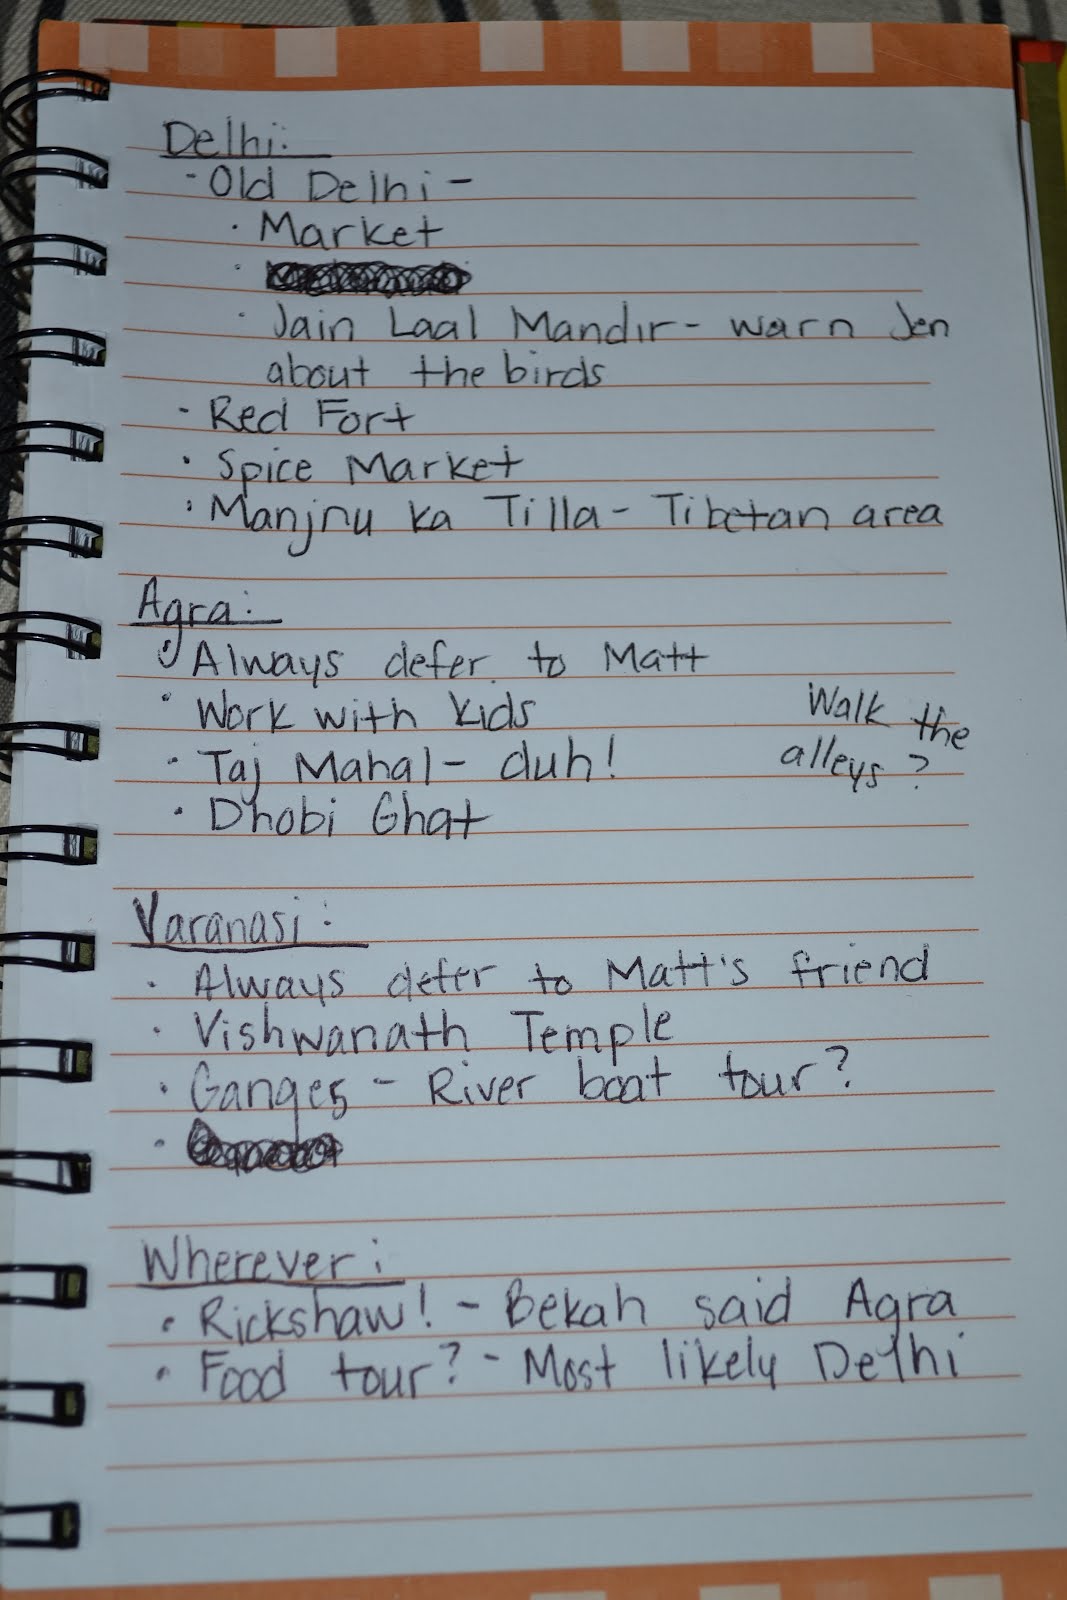 Delhi:
- Old Delhi -
· Market
· Jain Laal Mandir - warn Jen
about the birds
- Red Fort
· Spice Market
· Manjnu ka Tilla - Tibetan area
Agra:
· Always defer to Matt
· Work with kids
· Taj Mahal - duh!
· Dhobi Ghat
Walk the
alleys?
Varanasi:
· Always defer to Matt's friend
· Vishwanath Temple
· Ganges - River boat tour?
Wherever:
· Rickshaw! - Bekah said Agra
· Food tour? - Most likely Delhi